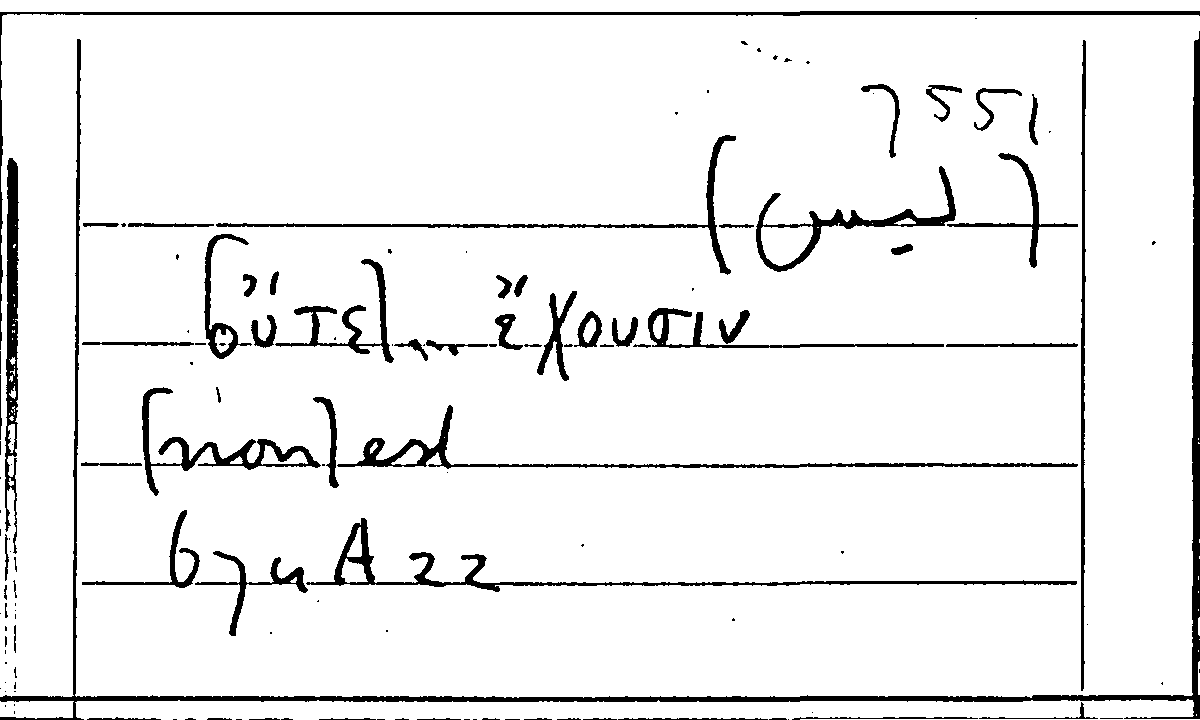 7551
(ليس)
[οὔτε]... ἔχουσιν
[non] est
67a A 22